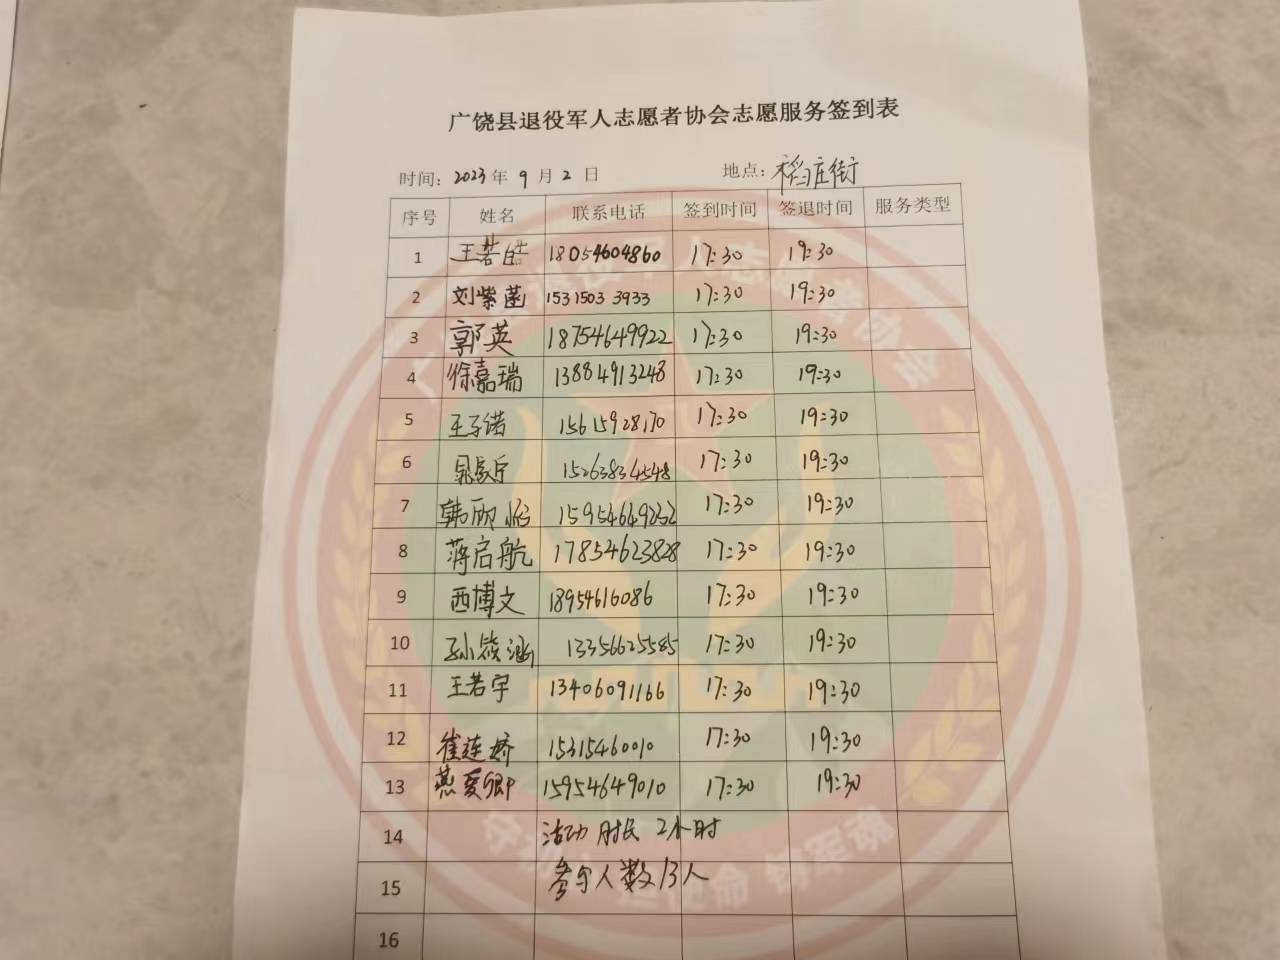 广饶县退役军人志愿者协会志愿服务签到表
时间：2023年 9 月 2 日 地点：稻庄街
序号 姓名 联系电话 签到时间 签退时间 服务类型
1 王若皓 18054604860 17:30 19:30
2 刘紫菡 15315033933 17:30 19:30
3 郭英 18754649922 17:30 19:30
4 徐嘉瑞 13884913248 17:30 19:30
5 王子诺 15615928170 17:30 19:30
6 15263834548 17:30 19:30
7 韩欣怡 15954649252 17:30 19:30
8 蒋启航 17854623828 17:30 19:30
9 西博文 18954616086 17:30 19:30
10 孙筱涵 13356625585 17:30 19:30
11 王若宇 13406091166 17:30 19:30
12 崔连娇 15315460010 17:30 19:30
13 燕爱卿 15954649010 17:30 19:30
14 活动时长 2小时
15 参与人数13人
16